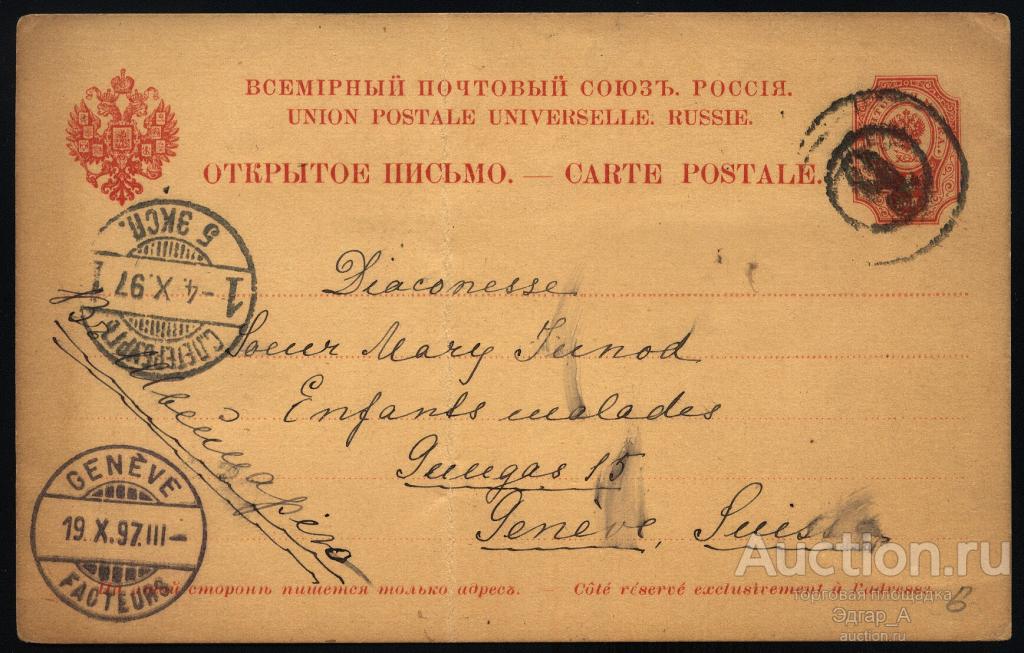 ВСЕМІРНЫЙ ПОЧТОВЫЙ СОЮЗЪ. РОССІЯ.
UNION POSTALE UNIVERSELLE. RUSSIE.
ОТКРЫТОЕ ПИСЬМО. — CARTE POSTALE.
5 ЭКСП.
1 -4.X.97 1
С.ПЕТЕРБУРГЪ
Diaconesse
Soeur Mary Junod
Enfants malades
15
Genève, Suisse
Въ Швейцарію
GENÈVE
19.X.97.III–
FACTEURS
На этой сторонѣ пишется только адресъ. — Côté réservé exclusivement à l'adresse.
Auction.ru
торговая площадка
Эдгар_А
auction.ru